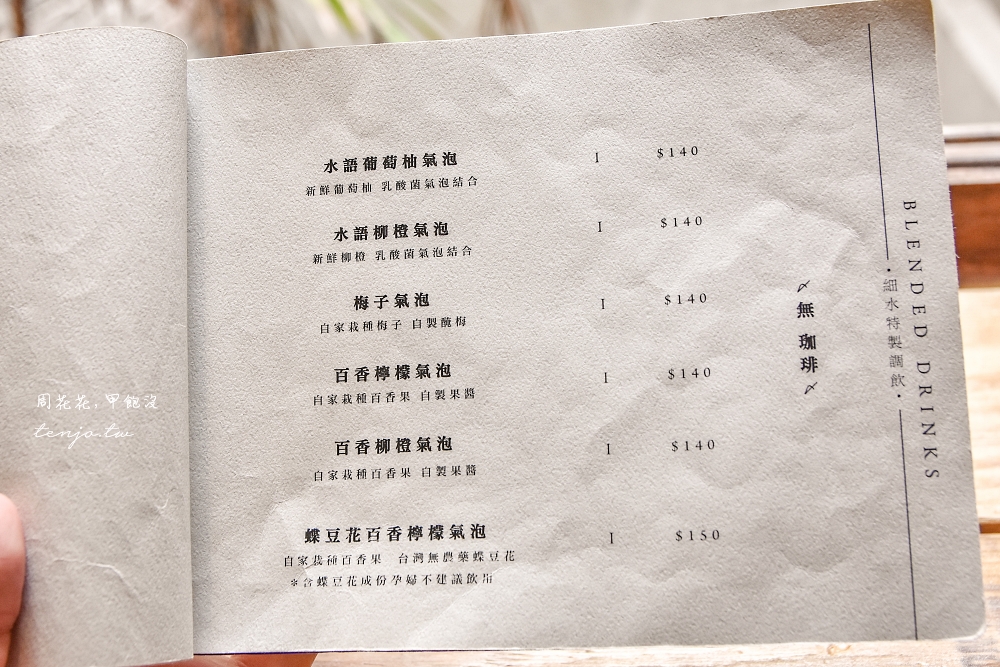 水語葡萄柚氣泡 I $140
新鮮葡萄柚 乳酸菌氣泡結合
水語柳橙氣泡 I $140
新鮮柳橙 乳酸菌氣泡結合
梅子氣泡 I $140
自家栽種梅子 自製醃梅
百香檸檬氣泡 I $140
自家栽種百香果 自製果醬
百香柳橙氣泡 I $140
自家栽種百香果 自製果醬
蝶豆花百香檸檬氣泡 I $150
自家栽種百香果 台灣無農藥蝶豆花
*含蝶豆花成份孕婦不建議飲用
無 珈琲
·細水特製調飲·
BLENDED DRINKS
周花花,甲飽沒
tenjo.tw